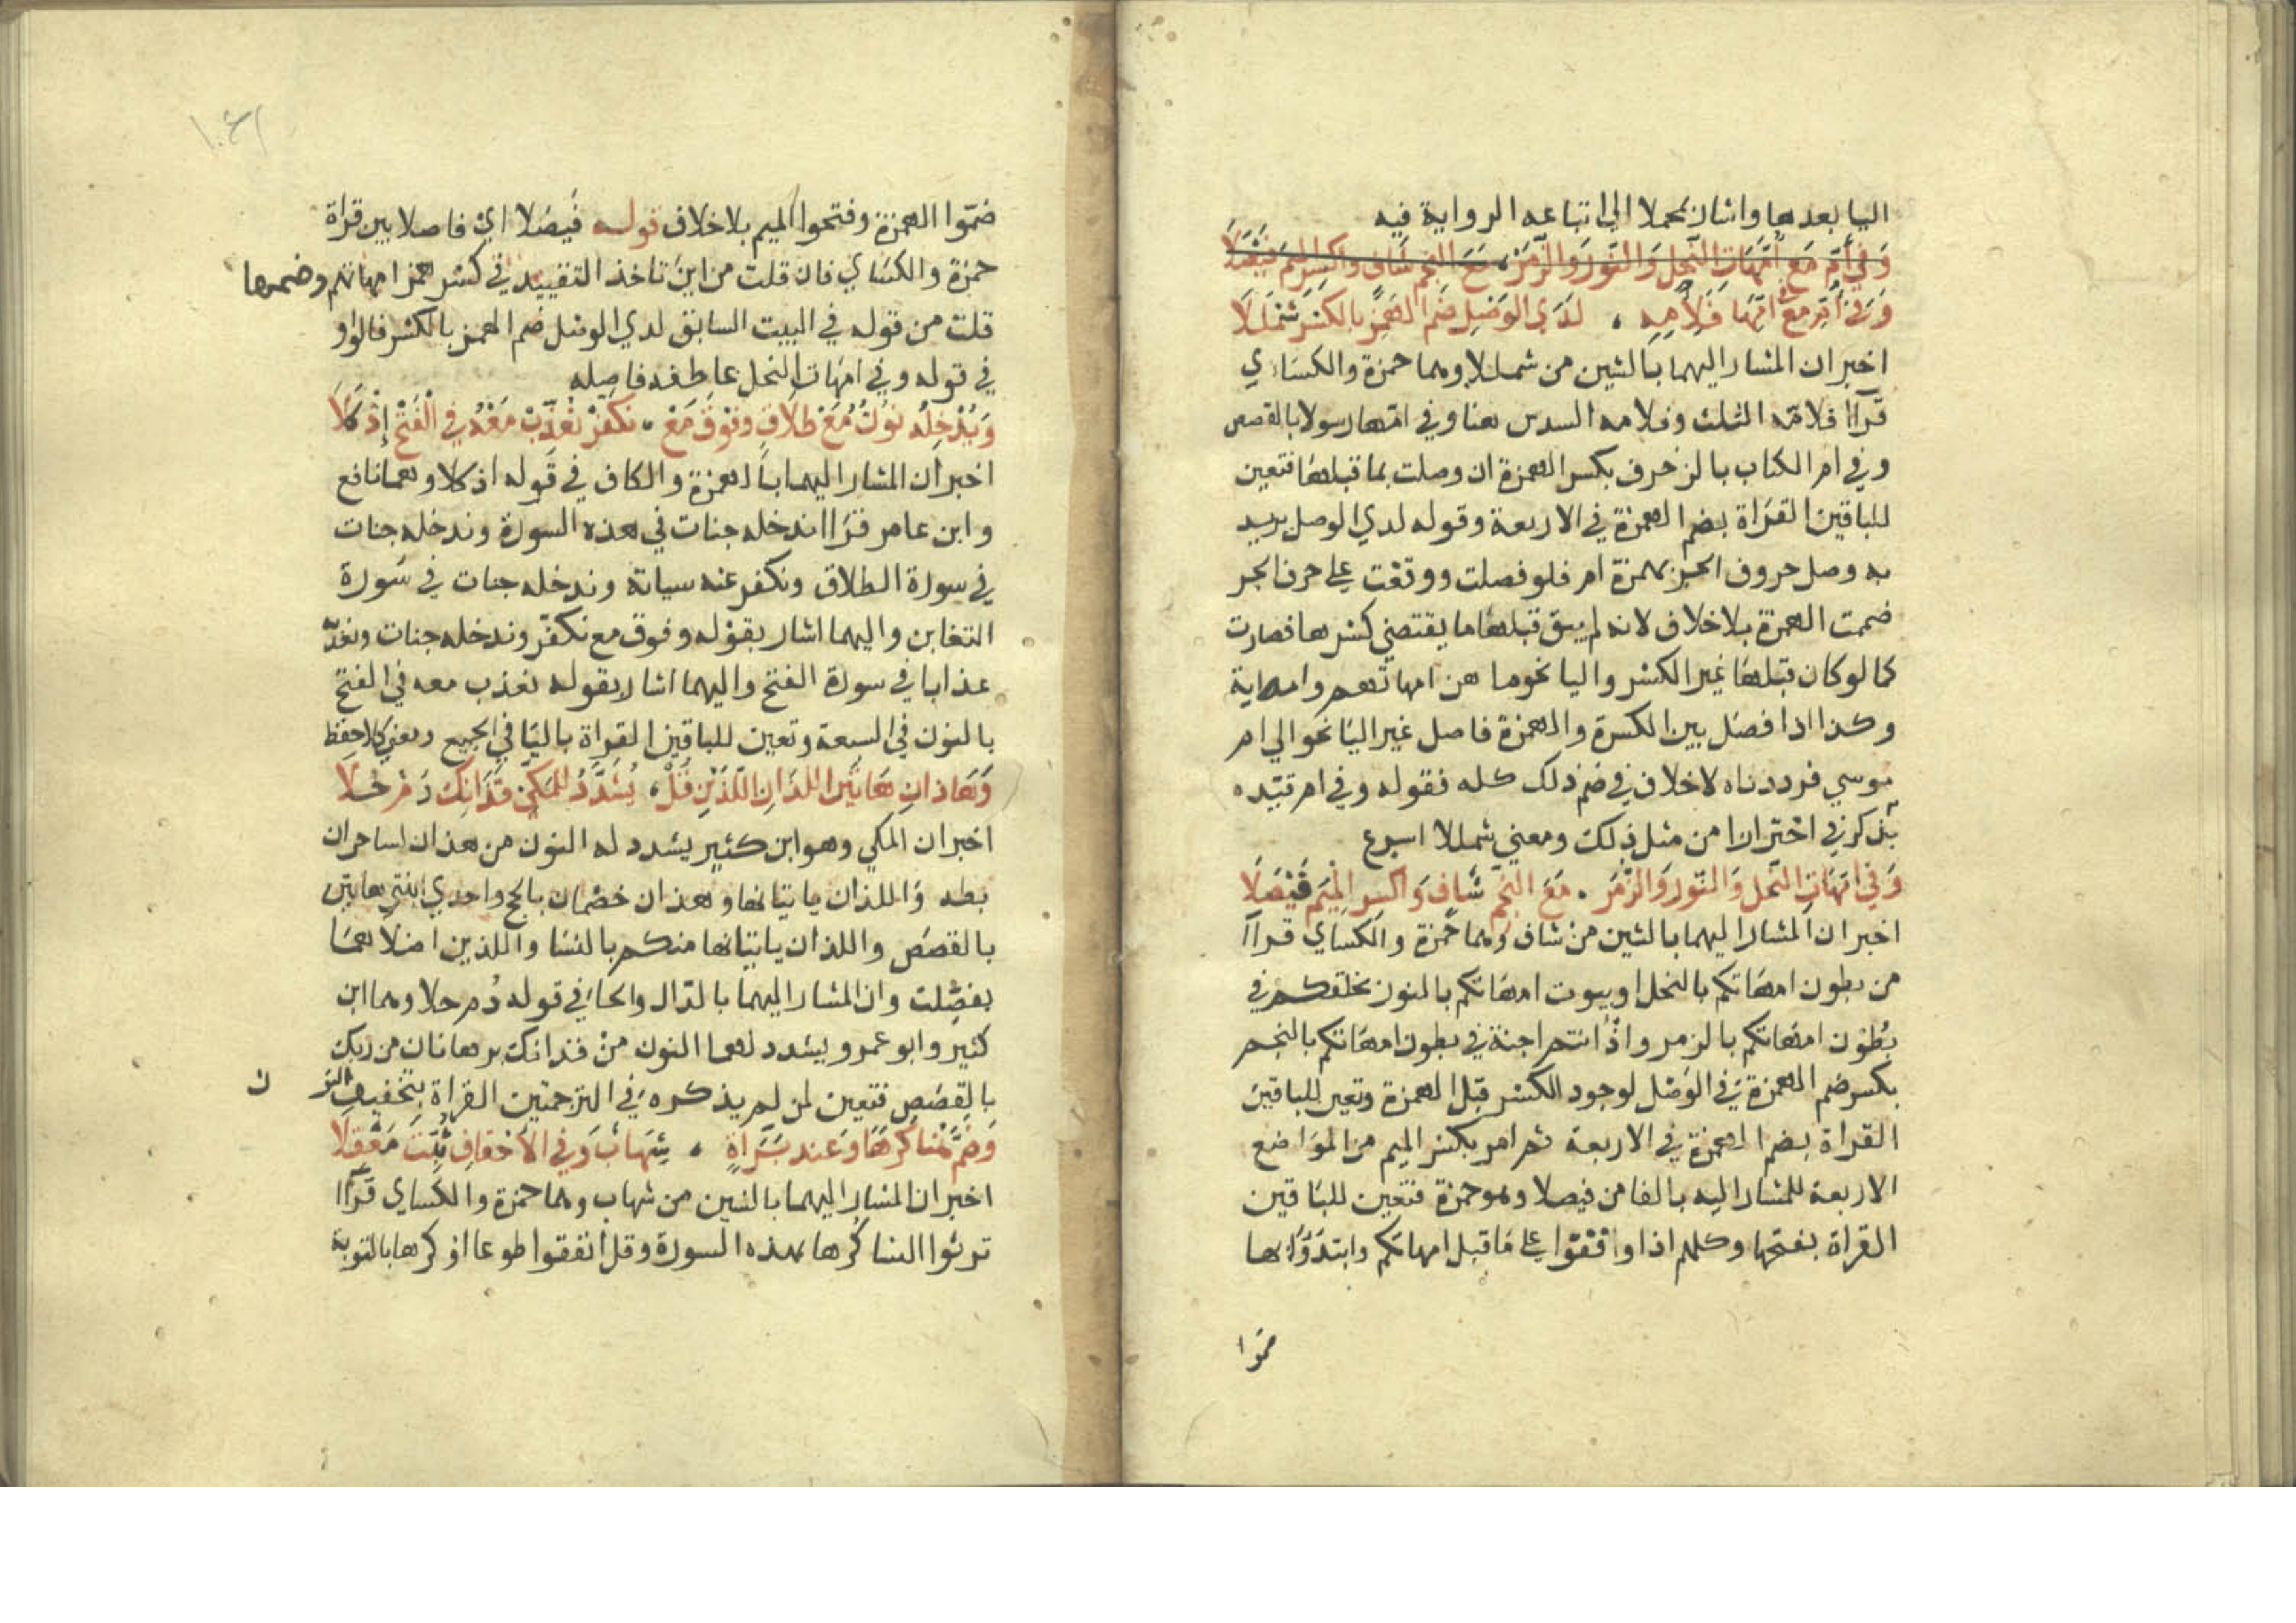 اليا بعدها واشار بمجملا الي اتباعه الرواية فيه
وَفي أم مَع أمَّهَاتِ النَّحلِ وَالنّورِ وَالزُّمَرْ، مَعَ النجمِ شَافٍ واكسر الميمَ فَيْصَلَا
وَفي أُمِّ مَعْ امِّهَا فَلِأُمِّهِ ، لَدَي الوَصْلِ ضَم الهَمْزِ بالكسْرِ شَمْلَلَا
اخبر ان المشار اليهما بالشين من شمللا وهما حمزة والكسَاءي
قرآا فلامّه الثلث وفلامه السدس هنا وفي امّها رسولا بالقصص
وفي ام الكتاب بالزخرف بكسر الهمزة ان وصلت بما قبلها فتعين
للباقين القرَاة بضم الهمزة في الاربعة وقوله لدي الوصل يريد
به وصل حروف الجر بهمزة ام فلو فصلت ووقفت علي حرف الجر
ضمت الهمزة بلا خلاف لانه لم يبق قبلها ما يقتضي كسرها فصارت
كما لو كان قبلها غير الكسر واليا نحو ما هن امهاتهم وامه اية
وكذا اذا فصَل بين الكسرة والهمزة فاصل غير اليَا نحو الي ام
موسي فرددناه لا خلاف في ضم ذلك كله فقوله وفي ام قيّده
بتذكر في احترازا من مثل ذلك ومعني شمللا اسرع
وَفي امّهَاتِ النَّحل وَالنّور وَالزُّمَر . مَعَ النَّجْمِ شَافٍ وَاكسِرِ المِيْمَ فَيْصَلَا
اخبر ان المشار اليهما بالشين من شاف وهما حمزة والكساي قرآا
من بطون امهَاتكم بالنحل او بيوت امهَاتكم بالنور يخلقكم في
بُطون امهَاتكم بالزمر واذ انتم اجنة في بطون امهَاتكم بالنجم
بكسر ضم الهمزة في الوَصْل لوجود الكسر قبل الهمزة وتعين للباقين
القراة بضم الهمزة في الاربعة ثم امر بكسر الميم من المواضع
الاربعة للمشار اليه بالفا من فيصلا وهو حمزة فتعين للباقين
القراة بفتحها وكلهم اذا وقفوا علي مَا قبل امهاتكم وابتدَؤا بها
ضموا
ضمّوا الهمزة وفتحوا الميم بلا خلاف قوله فَيصَلا اي فاصلا بين قراة
حمزة والكسَاي فان قلت من اينَ تاخذ التقييد في كسر همز امهاتكم وضمها
قلت من قوله في البيت السابق لدي الوصل ضم الهمز بالكسر فالواو
في قوله وفي امّهَات النحل عاطفه فاصله
وَيُدْخِلْهُ نُونٌ مَعْ طَلَاقٍ وفَوْق مَعْ ، نكفّرْ نُعَذّبْ مَعْهُ في الْفَتْحِ إِذْ كَلَا
اخبر ان المشار اليهما بالهمزة والكاف في قوله اذ كلا وهما نافع
وابن عامر قرَاا ندخله جنات في هذه السورة وندخله جنات
في سورة الطلاق ونكفر عنه سياته وندخله جنات في سُورة
التغابن واليهما اشار بقوله وفوق مع نكفّر وندخله جنات ونعذّبه
عذابا في سورة الفتح واليهما اشار بقوله نعذب معه في الفتح
بالنون في السبعة وتعين للباقين القراة باليَا في الجميع ومعني كلا حفظ
وَهَاذانِ هَاتَينِ اللذَانِ اللّذَيْنِ قُلْ ، يُشَدَّدُ للمَكّي فَذَانِكَ دُمْ حُلَا
اخبر ان المكي وهو ابن كثير يشدد له النون من هذان لساحران
بطه وَاللذان ياتيانها وهذان خصْمان بالحج واحدي ابنتي هاتين
بالقصَص واللذان ياتيانها منكم بالنسَا واللذين اضلاهمَا
بفصّلت وان المشار اليهما بالدّال والحَا في قوله دُم حلا وهما ابن
كثير وابو عمرو يشدد لهما النون منْ فذانك برهانان من ربك
بالقصَص فتعين لمن لم يذكره في الترجمتين القراة بتخفيف النو
ن
وَضُمَّ هُنَا كَرْهًا وَعِند بَرَاةٍ ، شِهَابٌ وَفي الأحْقافِ ثُبِّتَ مَعْقِلَا
اخبر ان المشار اليهما بالشين من شهاب وهما حمزة والكساي قرآا
ترثوا النسا كُرها بهذه السورة وقل انفقوا طوعا او كرها بالتوبة